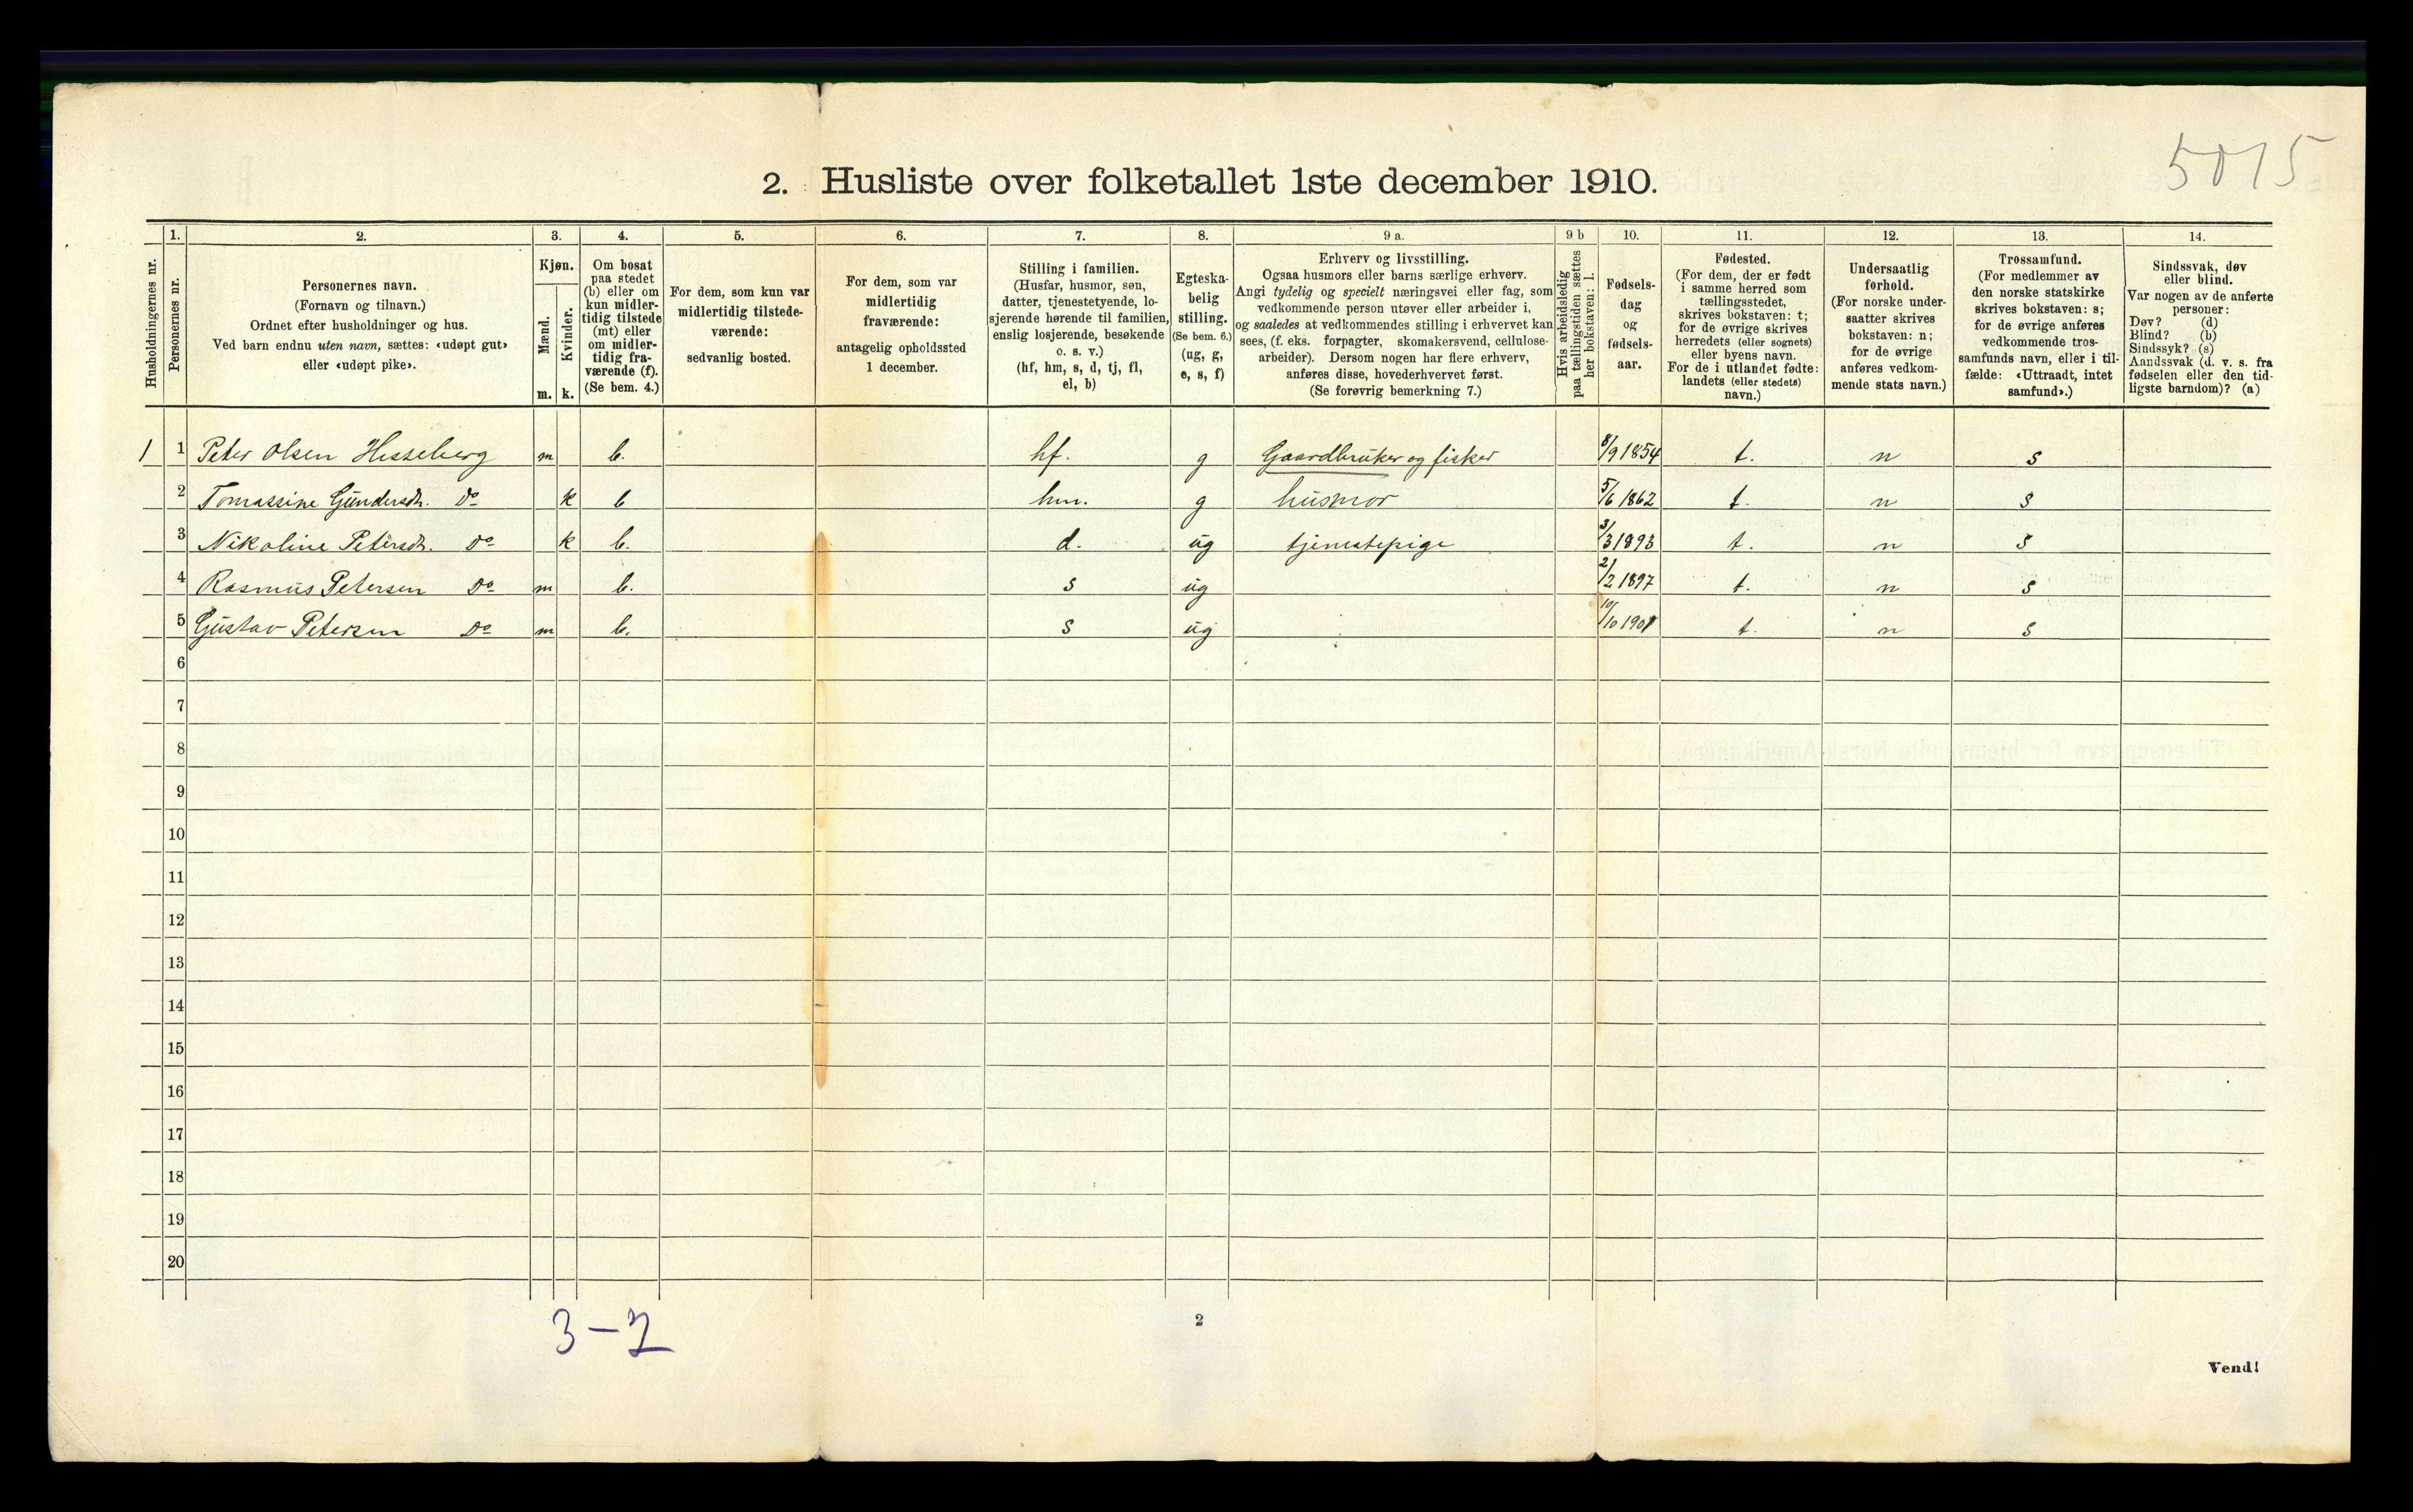 5015
2. Husliste over folketallet 1ste december 1910.
1. 2. 3. 4. 5. 6. 7. 8. 9 a. 9 b 10. 11. 12. 13. 14.
Husholdningernes nr.
Personernes nr.
Personernes navn.
(Fornavn og tilnavn.)
Ordnet efter husholdninger og hus.
Ved barn endnu uten navn, sættes: «udøpt gut»
eller «udøpt pike».
Kjøn.
Mænd.
Kvinder.
m. k.
Om bosat
paa stedet
(b) eller om
kun midler-
tidig tilstede
(mt) eller
om midler-
tidig fra-
værende (f).
(Se bem. 4.)
For dem, som kun var
midlertidig tilstede-
værende:
sedvanlig bosted.
For dem, som var
midlertidig
fraværende:
antagelig opholdssted
1 december.
Stilling i familien.
(Husfar, husmor, søn,
datter, tjenestetyende, lo-
sjerende hørende til familien,
enslig losjerende, besøkende
o. s. v.)
(hf, hm, s, d, tj, fl,
el, b)
Egteska-
belig
stilling.
(Se bem. 6.)
(ug, g,
e, s, f)
Erhverv og livsstilling.
Ogsaa husmors eller barns særlige erhverv.
Angi tydelig og specielt næringsvei eller fag, som
vedkommende person utøver eller arbeider i,
og saaledes at vedkommendes stilling i erhvervet kan
sees, (f. eks. forpagter, skomakersvend, cellulose-
arbeider). Dersom nogen har flere erhverv,
anføres disse, hovederhvervet først.
(Se forøvrig bemerkning 7.)
Hvis arbeidsledig
paa tællingstiden sættes
her bokstaven: l.
Fødsels-
dag
og
fødsels-
aar.
Fødested.
(For dem, der er født
i samme herred som
tællingsstedet,
skrives bokstaven: t;
for de øvrige skrives
herredets (eller sognets)
eller byens navn.
For de i utlandet fødte:
landets (eller stedets)
navn.)
Undersaatlig
forhold.
(For norske under-
saatter skrives
bokstaven: n;
for de øvrige
anføres vedkom-
mende stats navn.)
Trossamfund.
(For medlemmer av
den norske statskirke
skrives bokstaven: s;
for de øvrige anføres
vedkommende tros-
samfunds navn, eller i til-
fælde: «Uttraadt, intet
samfund».)
Sindssvak, døv
eller blind.
Var nogen av de anførte
personer:
Døv? (d)
Blind? (b)
Sindssyk? (s)
Aandssvak (d. v. s. fra
fødselen eller den tid-
ligste barndom)? (a)
1 1 Peter Olsen Hesseberg m b. hf. g Gaardbruker og fisker 8/9 1854 t. n s
2 Tomassine Gundersdt. Do k b hm. g husmor 5/6 1862 t. n s
3 Nikoline Petersdt. Do k b. d. ug tjenestepige 3/3 1893 t. n s
4 Rasmus Petersen Do m b. s ug 2/2 1897 t. n s
5 Gustav Petersen Do m b. s ug 10/10 1901 t. n s
6
7
8
9
10
11
12
13
14
15
16
17
18
19
20
3-2
2
Vend!